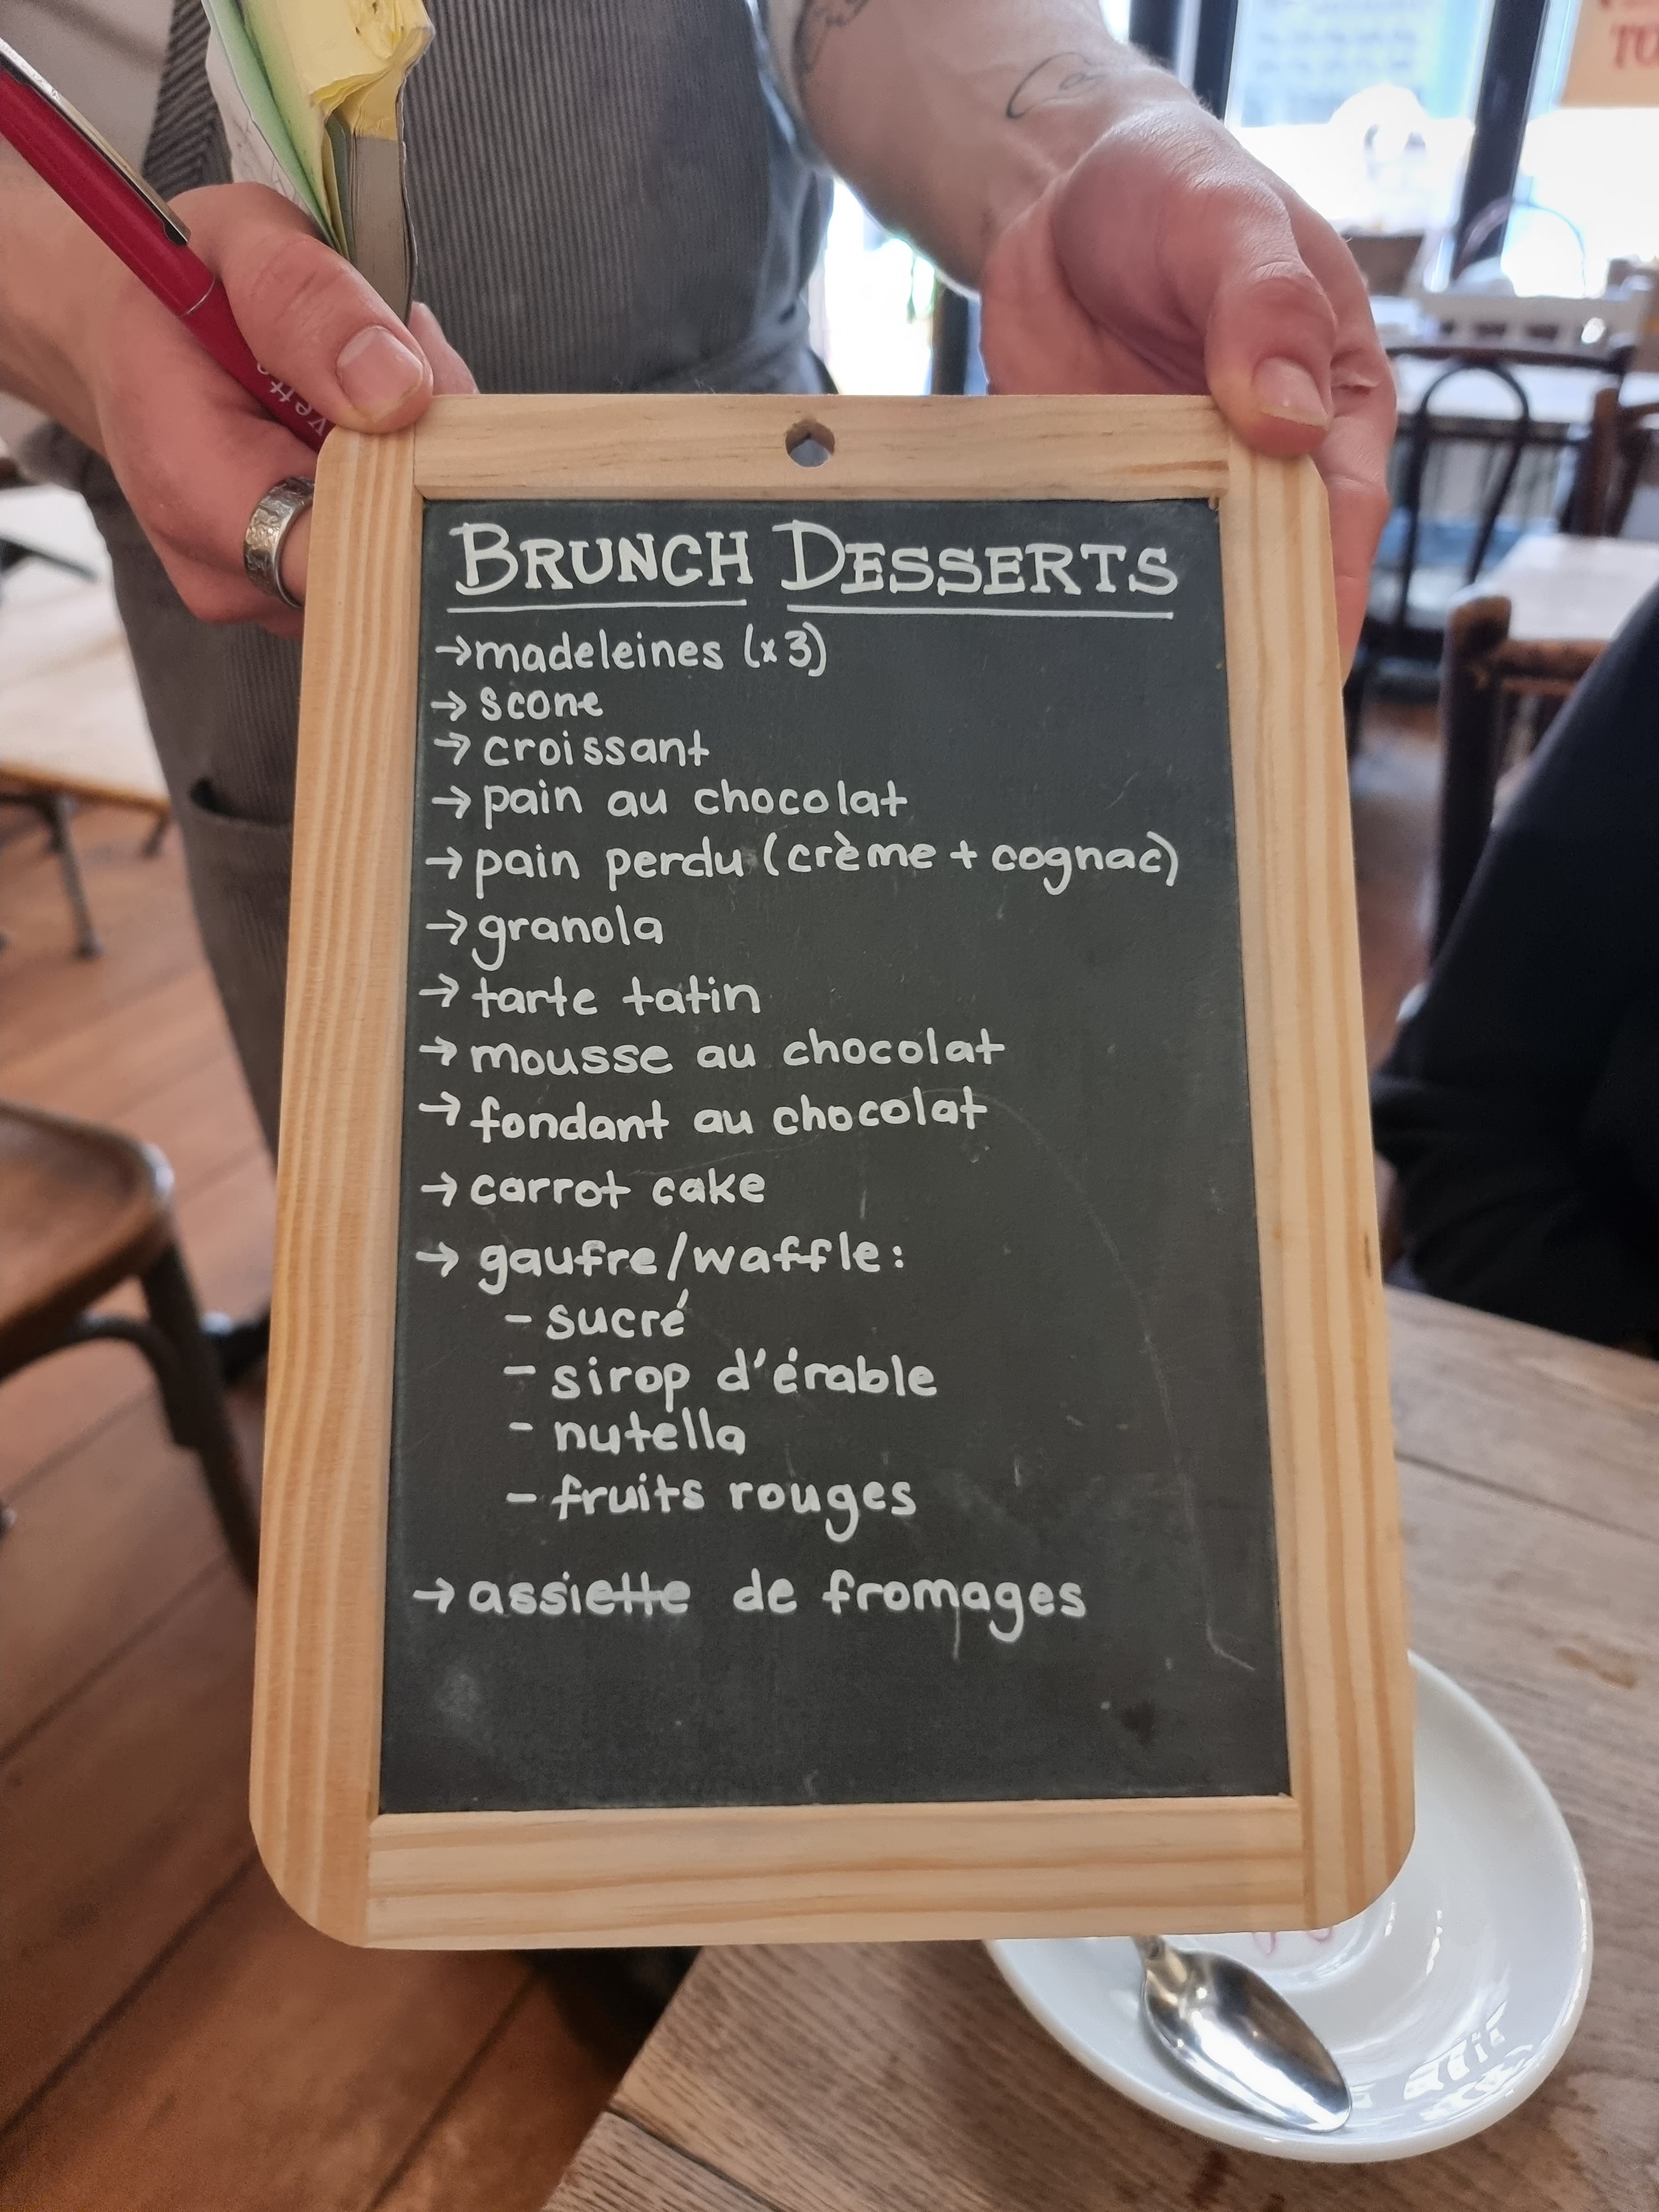 BRUNCH DESSERTS
→ madeleines (x3)
→ scone
→ croissant
→ pain au chocolat
→ pain perdu (crème + cognac)
→ granola
→ tarte tatin
→ mousse au chocolat
→ fondant au chocolat
→ carrot cake
→ gaufre/waffle:
- sucré
- sirop d'érable
- nutella
- fruits rouges
→ assiette de fromages